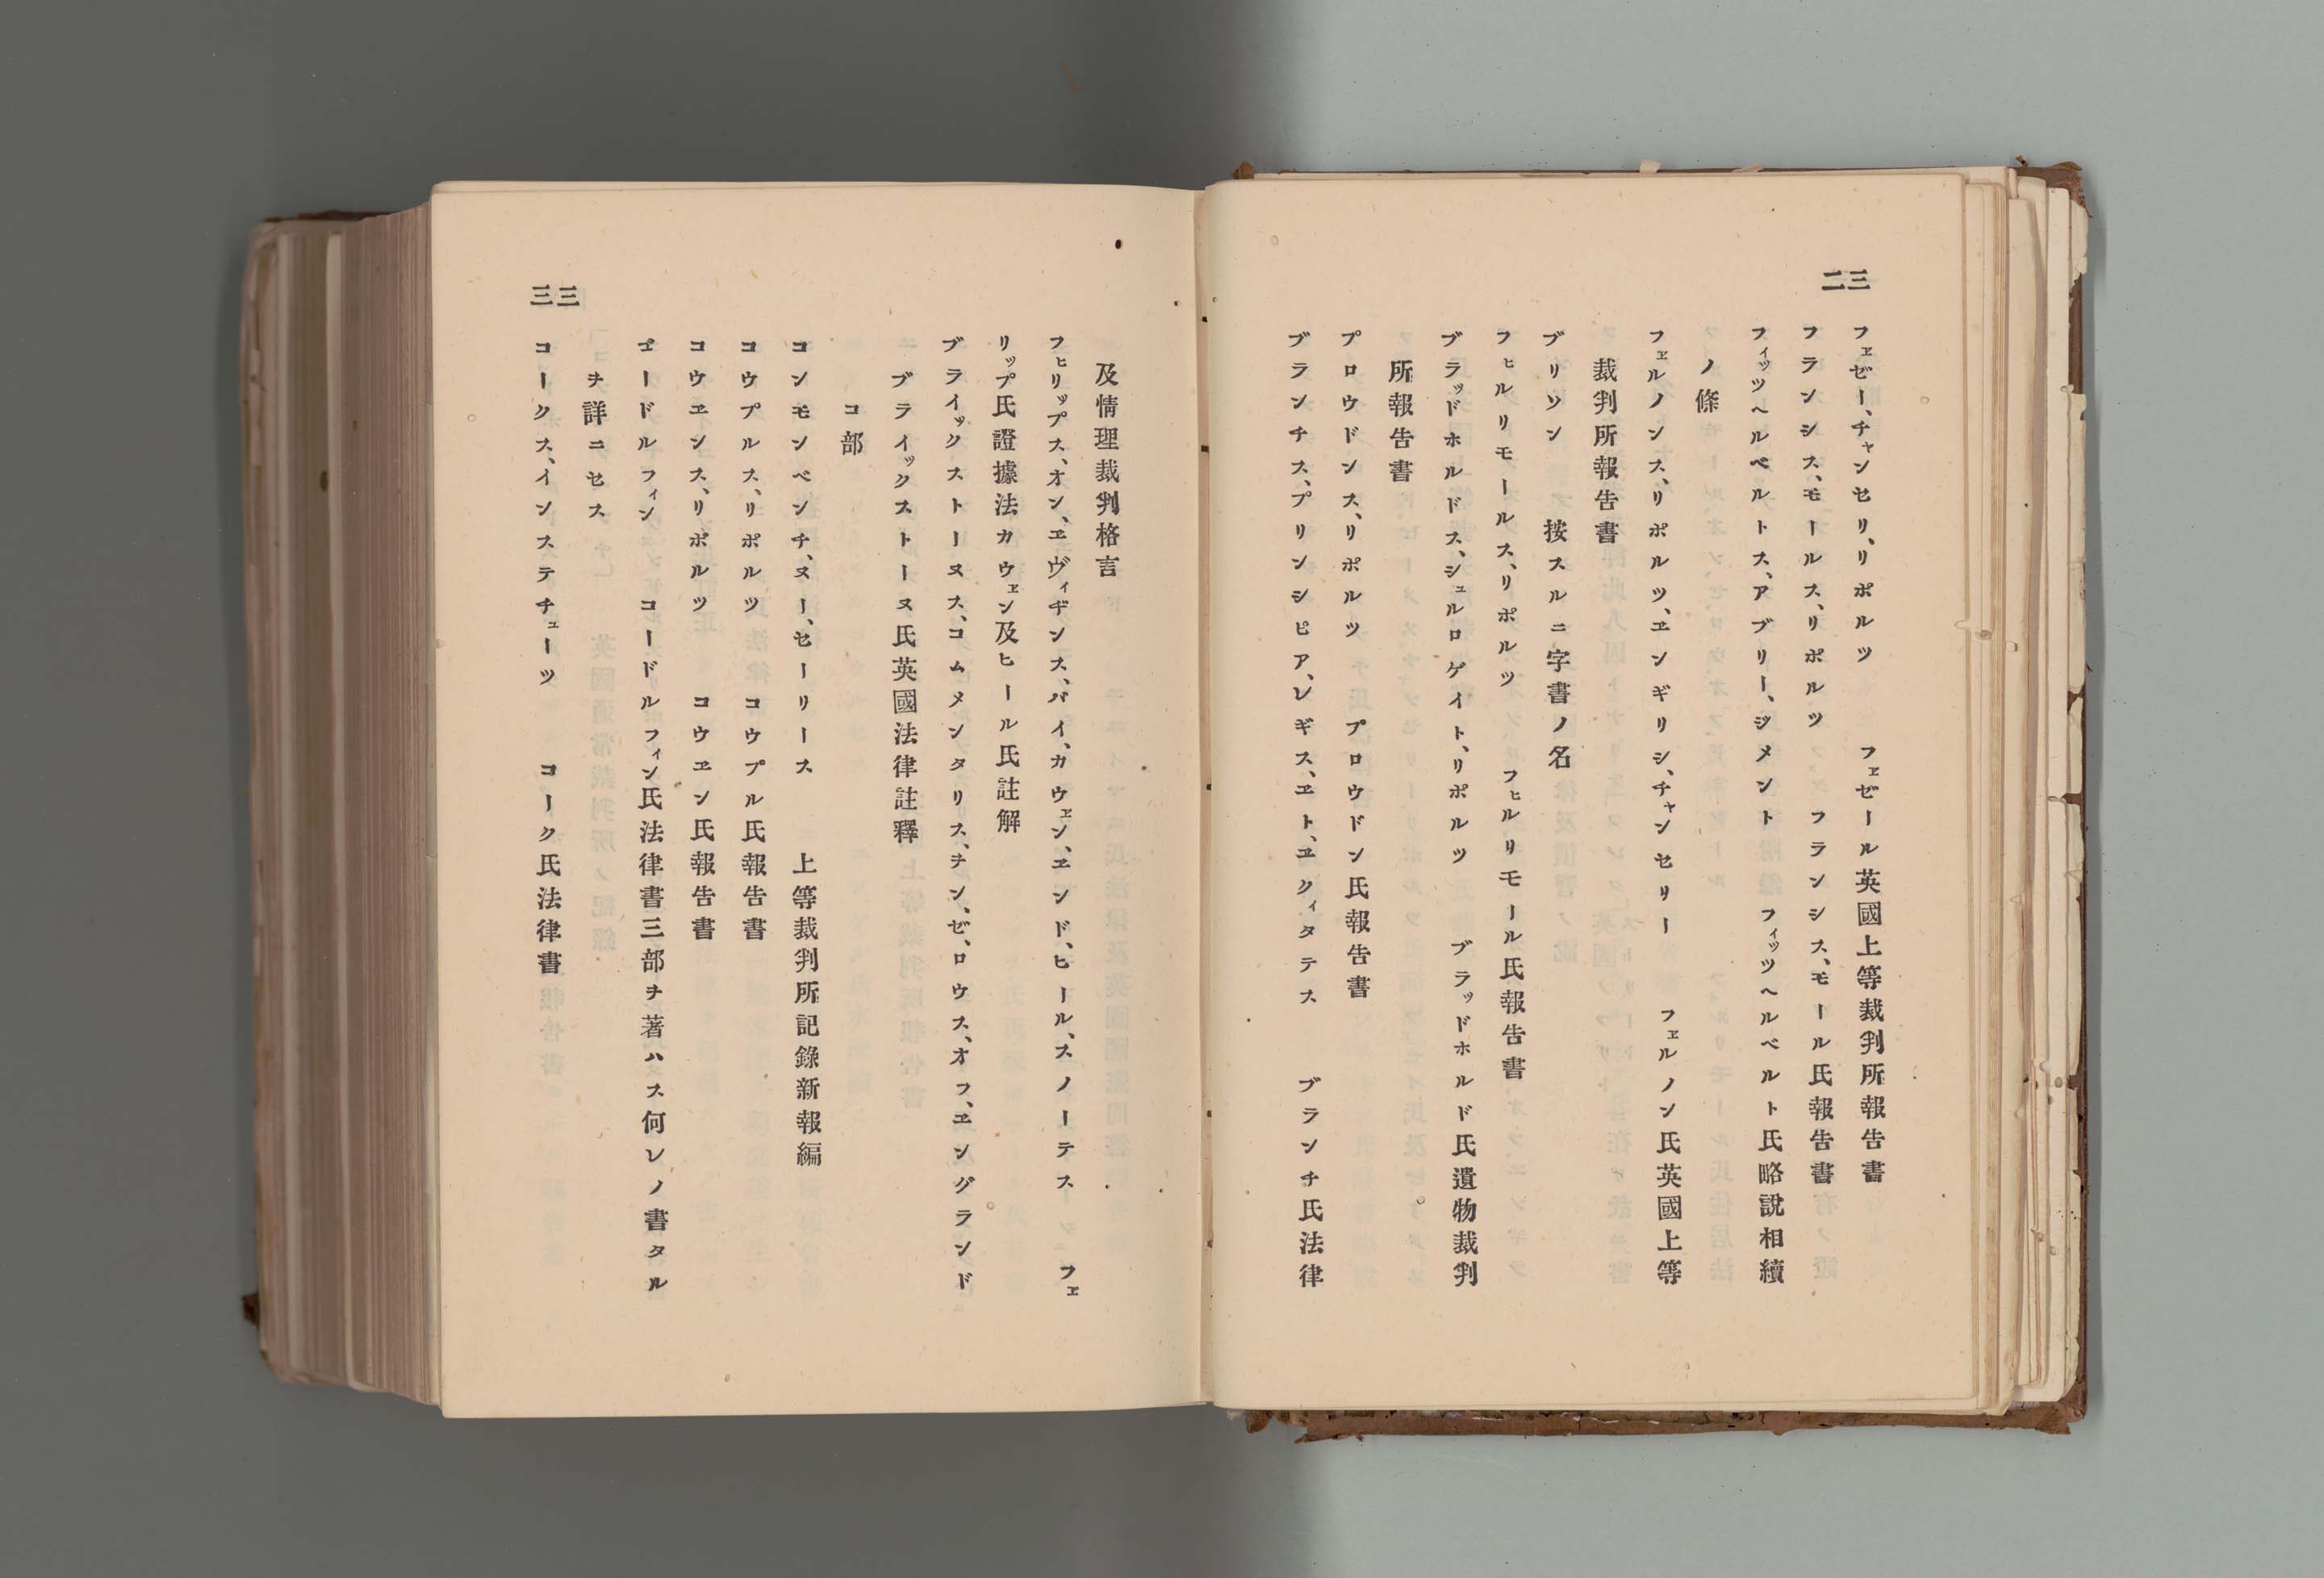 三二
フェゼー、チャンセリ、リポルツ　フェゼール英國上等裁判所報告書
フランシス、モールス、リポルツ　フランシス、モール氏報告書
フィッツヘルベルトス、アブリー、ジメント　フィッツヘルベルト氏略說相續
ノ條
フェルノンス、リポルツ、エンギリシ、チャンセリー　フェルノン氏英國上等
裁判所報告書
ブリソン　按スルニ字書ノ名
フヒルリモールス、リポルツ　フヒルリモール氏報告書
ブラッドホルドス、シュルロゲイト、リポルツ　ブラッドホルド氏遺物裁判
所報告書
プロウドンス、リポルツ　プロウドン氏報告書
ブランチス、プリンシピア、レギス、エト、エクィタテス　ブランチ氏法律
及情理裁判格言
フヒリップス、オン、エヴィヂンス、バイ、カウェン、エンド、ヒール、スノーテス　フェ
リップ氏證據法カウェン及ヒール氏註解
ブライックストーヌス、コムメンタリス、ヲン、ゼ、ロウス、オフ、エングランド
ブライックストーヌ氏英國法律註釋
コ部
コンモンベンチ、ヌー、セーリース　上等裁判所記錄新報編
コウプルス、リポルツ　コウプル氏報告書
コウエンス、リポルツ　コウエン氏報告書
ゴードルフィン　コードルフィン氏法律書三部ヲ著ハス何レノ書タル
ヲ詳ニセス
コークス、インステチューツ　コーク氏法律書
三三